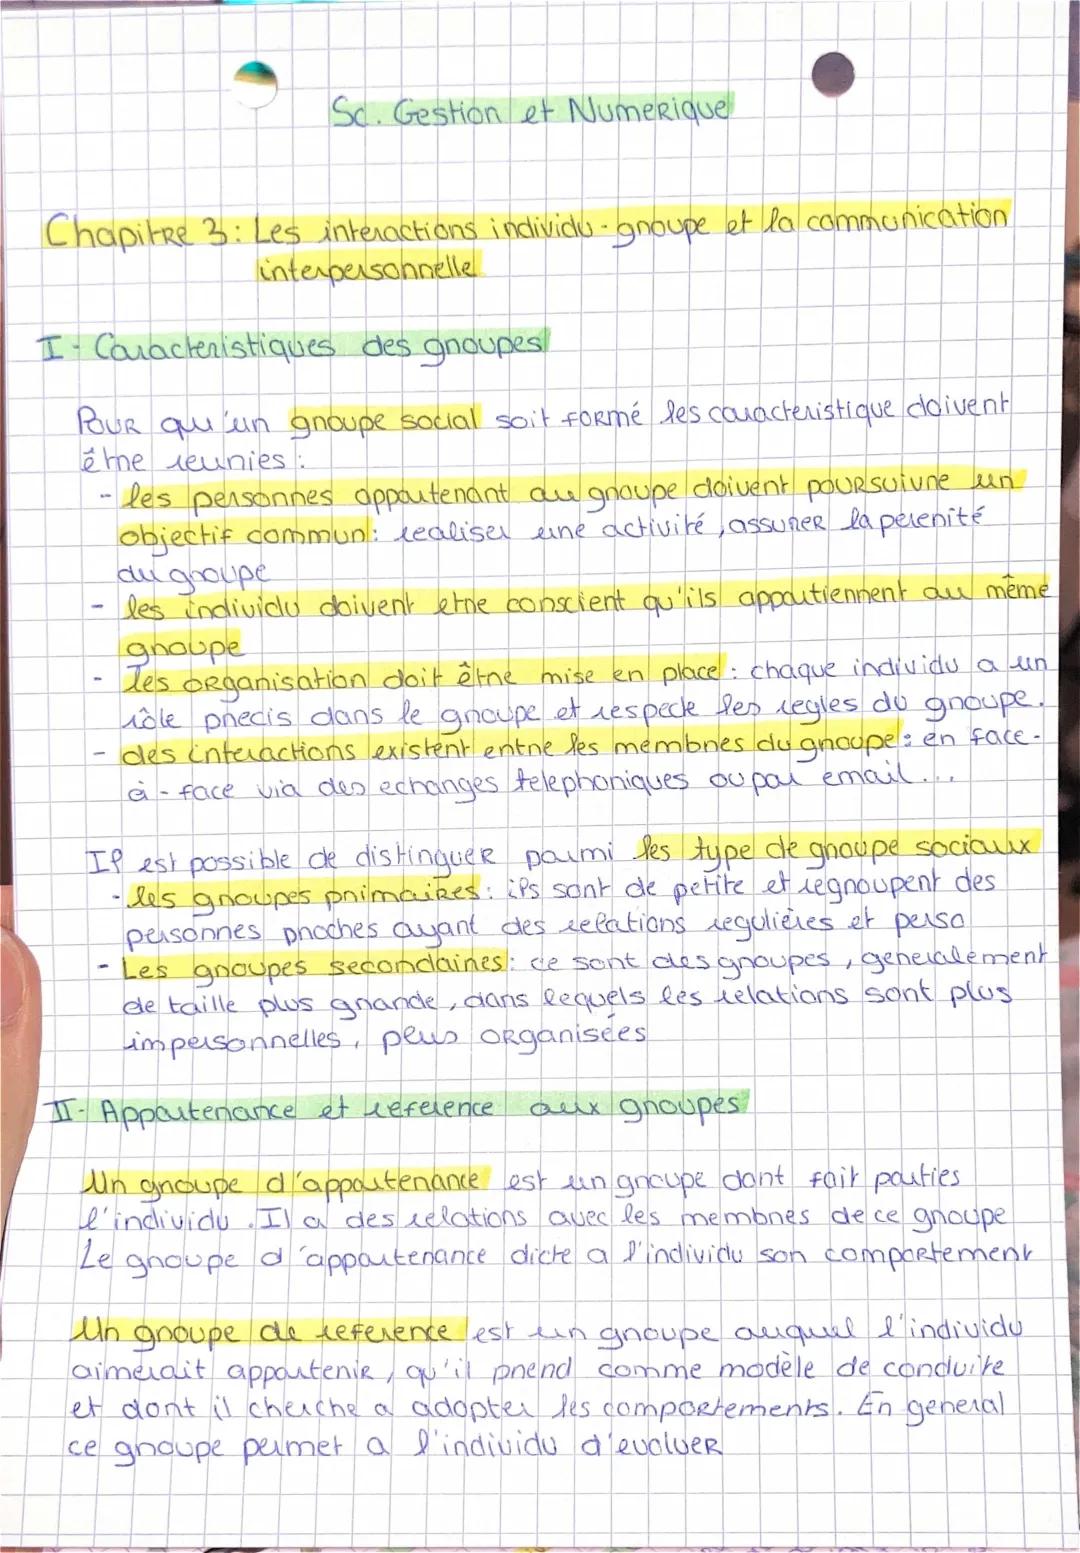 Sc. Gestion et Numerique
Chapitre 3: Les interactions individu-groupe et la communication
interpersonnelle
I- Caracteristiques des groupes
Pour qu'un groupe social soit formé les caracteristique doivent
être reunies :
- les personnes appartenant au groupe doivent poursuivre un
objectif commun : realiser une activité, assurer la perenité
du groupe
- les individu doivent etre conscient qu'ils appartiennent au même
groupe
- les organisation doit être mise en place : chaque individu a un
rôle precis dans le groupe et respecte les regles du groupe.
- des interactions existent entre les membres du groupe : en face-
à-face via des echanges telephoniques ou par email...
Il est possible de distinguer parmi les type de groupe sociaux
- les groupes primaires : ils sont de petite et regroupent des
personnes proches ayant des relations regulières et perso
- Les groupes secondaires : ce sont des groupes, generalement
de taille plus grande, dans lequels les relations sont plus
impersonnelles, plus organisées
II- Appartenance et reference aux groupes
Un groupe d'appartenance est un groupe dont fait parties
l'individu. Il a des relations avec les membres de ce groupe
Le groupe d'appartenance dicte a l'individu son comportement
Un groupe de reference est un groupe auquel l'individu
aimerait appartenir, qu'il prend comme modèle de conduite
et dont il cherche a adopter les comportements. En general
ce groupe permet a l'individu d'evoluer